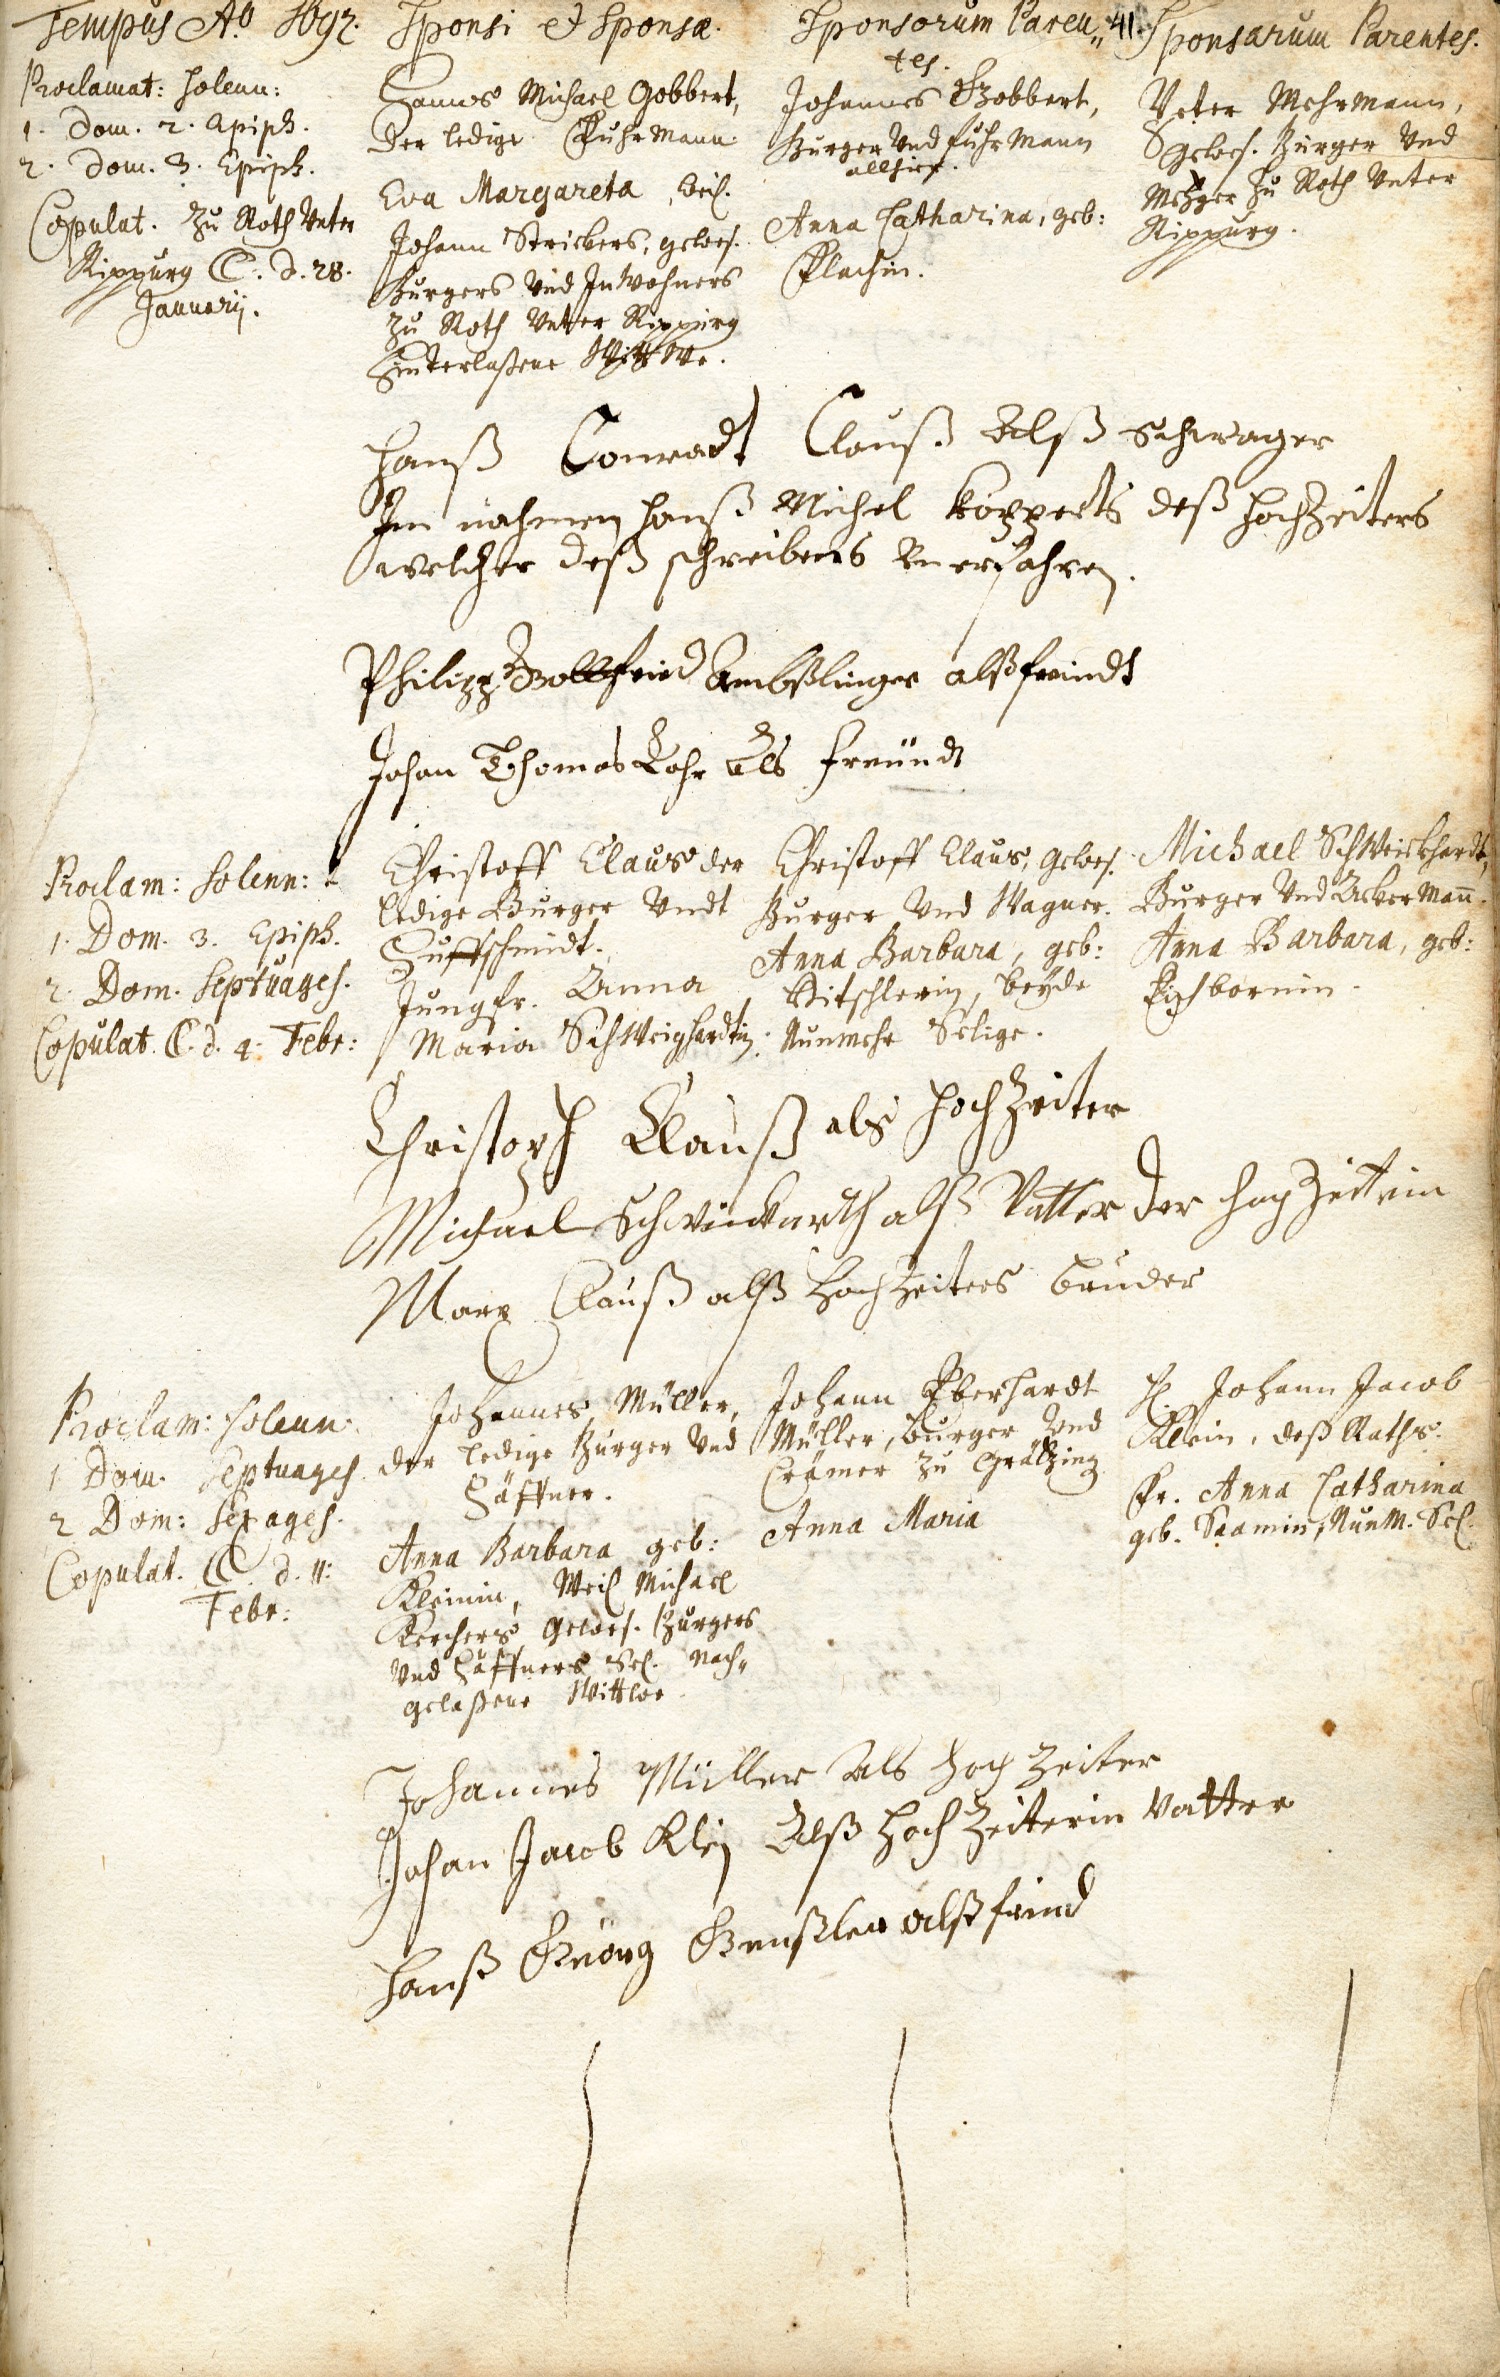 Tempus Aö 1692.
Sponsi et Sponsæ.
Sponsorum Paren„
tes.
41.
Sponsarum Parentes.
Proclamat: solenn:
1. Dom. 2. Epiph.
2. Dom. 3. Epiph.
Copulat. zu Roth Unter
Rippurg C. d. 28.
Januarij.
Hannß Michael Gobbert,
der ledige Fuhrmann.
Eva Margareta, weil.
Johann Strickers, gewes.
Burgers und Inwohners
zu Roth Unter Rippurg
hinterlaßene Wittwe.
Johannes Gobbert,
Burger und Fuhrmann
allhier.
Anna Catharina, geb:
Flachin.
Veter Mehrmann,
gewes. Burger und
Metzger zu Roth Unter
Rippurg.
Hanß Conradt Clauß Alß Schwager
Im nahmen Hanß Michel Kopperts deß Hochzeiters
welcher deß schreibens Unerfahren.
Philipp Gottfried Ambßlinger alß freindt
Johan Thomas Lohr Als freündt
Proclam: solenn:
1. Dom. 3. Epiph.
2. Dom. Septuages.
Copulat. C. d. 4. Febr:
Christoff Claus der
ledige Burger Undt
Huffschmidt.
Jungfr. Anna
Maria Schweighardtin.
Christoff Claus, gewes.
Burger und Wagner.
Anna Barbara, geb:
Hitschlerin, beyde
Nunmehr Selige.
Michael Schweickhardt,
Burger und Ackermañ.
Anna Barbara, geb:
Fischbornin.
Christoph Clauß als Hochzeiter
Michael Schweickarth alß Vatter der hochzeitrin
Marx Clauß alß Hochzeiters bruder
Proclam: solenn.
1 Dom. Septuages.
2 Dom: Sexages.
Copulat. C. d. 11:
Febr:
Johannes Müller,
der ledige Burger und
Häffner.
Anna Barbara geb:
Kleinin, Weil Michael
Kerchers, Gewes. Burgers
und Häffners Sel. nach„
gelaßene Wittwe.
Johann Eberhardt
Müller, Burger und
Crämer zu Grätzing
Anna Maria
H. Johann Jacob
Klein, deß Raths.
Fr. Anna Catharina
geb. Saamin, Nunm. Sel.
Johannes Müller Als Hochzeiter
Johan Jacob Klein Alß Hochzeiterin Vatter
Hanß Geörg Genßler alß freind